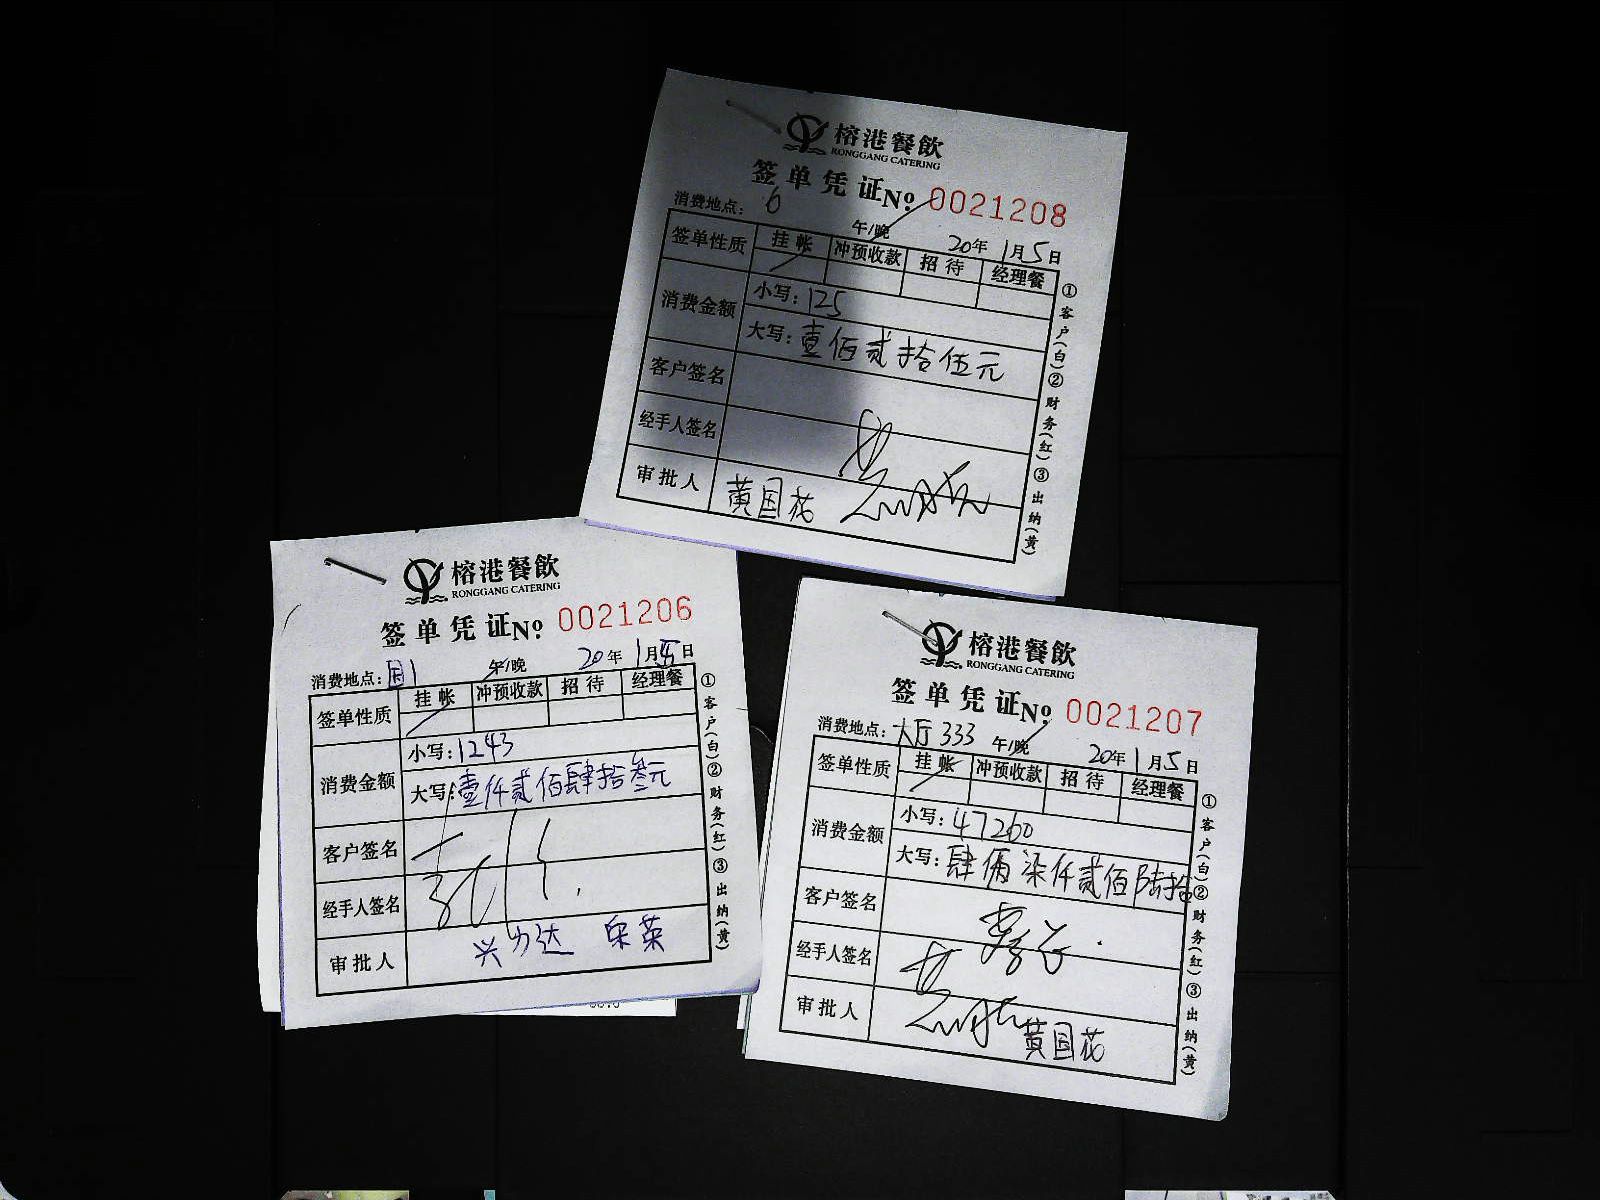 榕港餐飲
RONGGANG CATERING
签单凭证 № 0021208
消费地点: 6 午/晚 20年 1月5日
签单性质 挂帐 冲预收款 招待 经理餐
消费金额 小写: 125
大写: 壹佰贰拾伍元
客户签名
经手人签名
审批人 黄国花
①客户(白)②财务(红)③出纳(黄)
榕港餐飲
RONGGANG CATERING
签单凭证 № 0021206
消费地点: 国1 午/晚 20年 1月5日
签单性质 挂帐 冲预收款 招待 经理餐
消费金额 小写: 1243
大写: 壹仟贰佰肆拾叁元
客户签名
经手人签名
审批人 兴力达
①客户(白)②财务(红)③出纳(黄)
榕港餐飲
RONGGANG CATERING
签单凭证 № 0021207
消费地点: 大厅333 午/晚 20年 1月5日
签单性质 挂帐 冲预收款 招待 经理餐
消费金额 小写: 47260
大写: 肆俩柒仟贰佰陆拾
客户签名
经手人签名
审批人 黄国花
①客户(白)②财务(红)③出纳(黄)